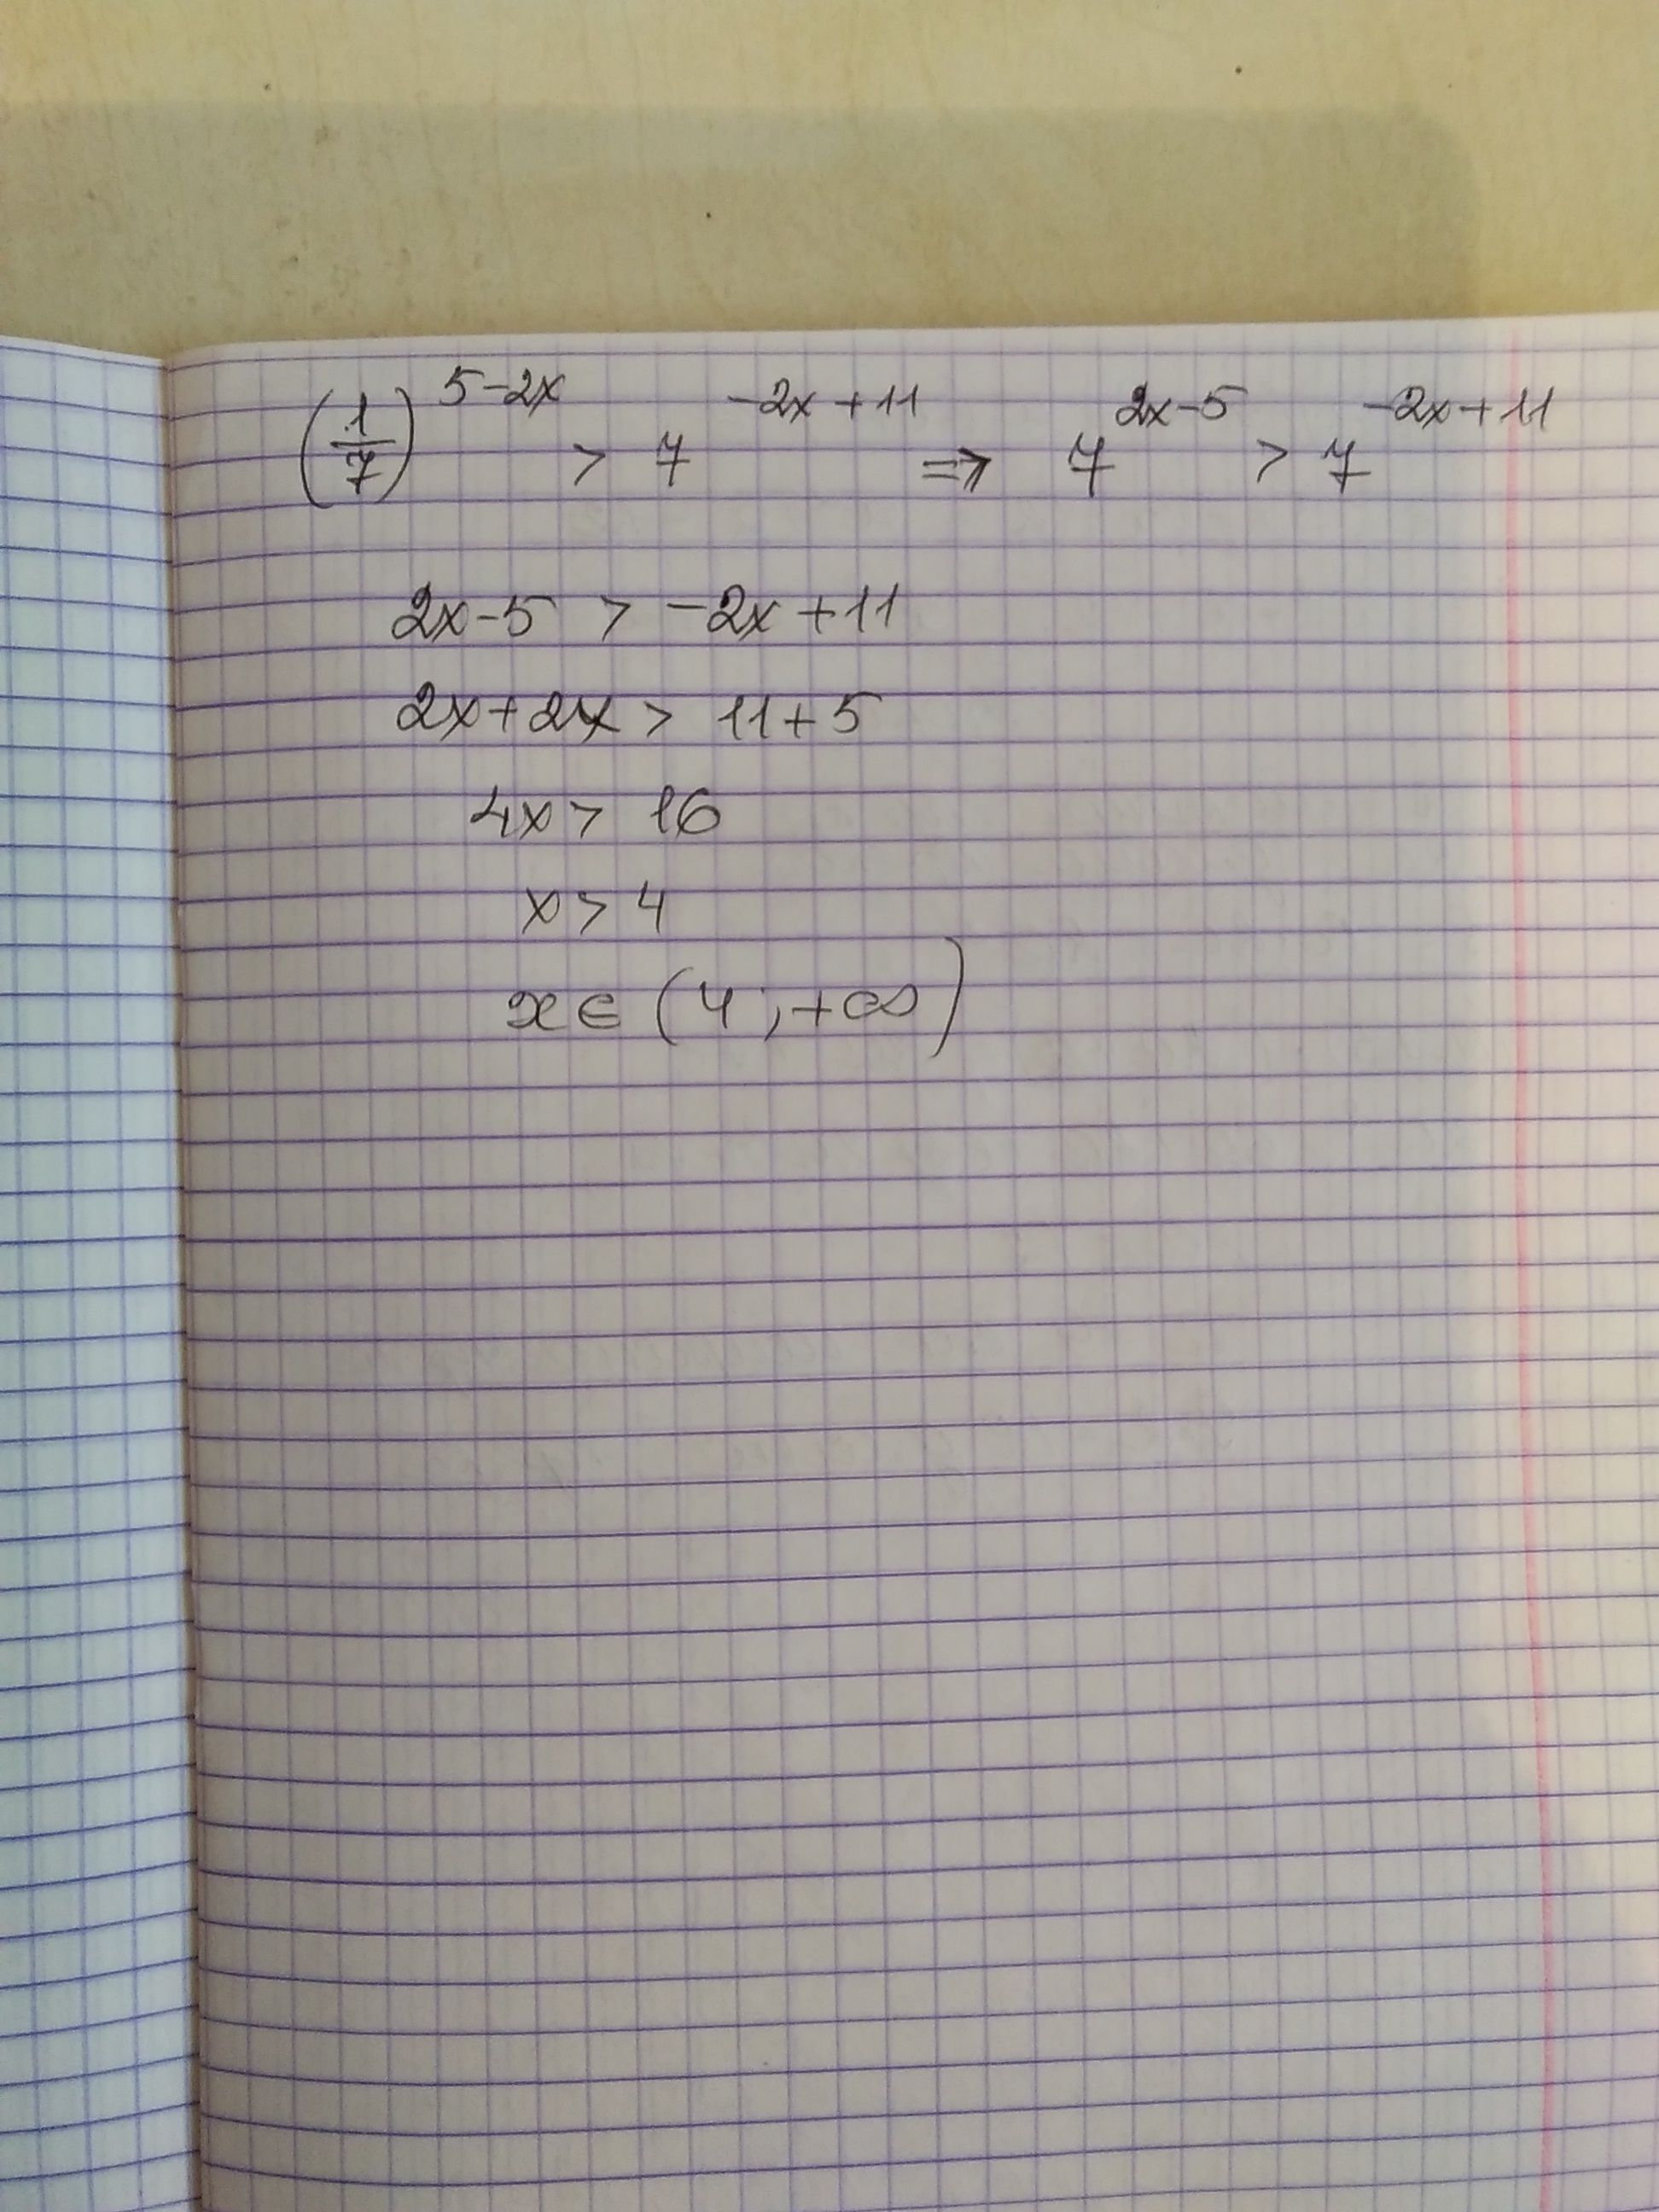 (1/7)^(5-2x) > 7^(-2x+11) => 7^(2x-5) > 7^(-2x+11)
2x-5 > -2x+11
2x+2x > 11+5
4x > 16
x > 4
x ∈ (4; +∞)